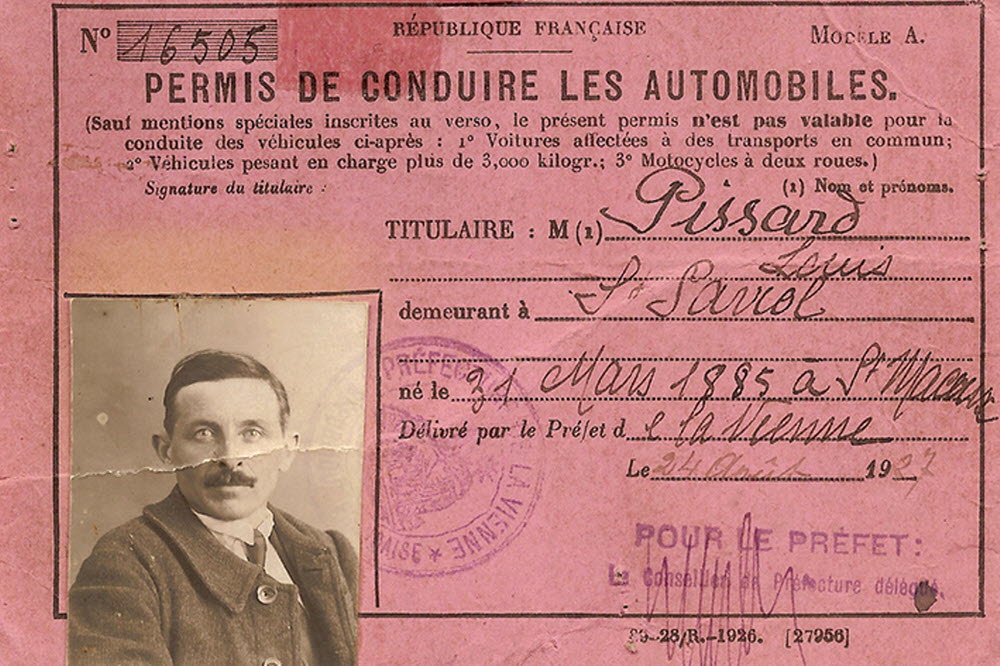 Nº 16505
RÉPUBLIQUE FRANÇAISE
MODÈLE A.
PERMIS DE CONDUIRE LES AUTOMOBILES.
(Sauf mentions spéciales inscrites au verso, le présent permis n'est pas valable pour la
conduite des véhicules ci-après : 1º Voitures affectées à des transports en commun;
2º Véhicules pesant en charge plus de 3,000 kilogr.; 3º Motocycles à deux roues.)
Signature du titulaire :
(1) Nom et prénoms.
TITULAIRE : M (1) Pissard
Louis
demeurant à St Saviol
né le 31 Mars 1885 à St Macoux
Délivré par le Préfet de la Vienne
Le 24 Août 1927
PRÉFECTURE
LA VIENNE
POUR LE PRÉFET:
Le Conseiller de Préfecture délégué,
39-28/R.-1926. [27956]